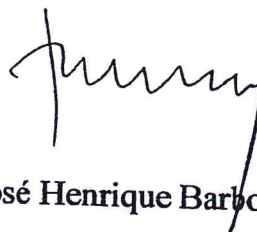 osé Henrique Barbo